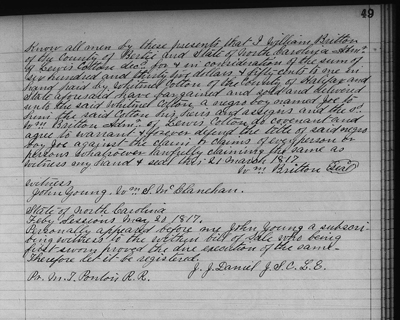 49
Know all men by these presents, that I William Britton
of the County of Bertie and State of North Carolina Admr
of Lewis Cotton decd for & in consideration of the sum of
six hundred and thirty five dollars & fifty cents to me in
hand paid by Whitmel Cotton of the County of Halifax and
State aforesaid have bargained and sold and delivered
unto the said Whitmel Cotton a negro boy named Joe to
him the said Cotton his heirs and assigns and the sd
Wm Britton Admr of Lewis Cotton do covenant and
agree to warrant & forever defend the title of said negro
boy Joe against the claim or claims of every person or
persons whatsoever lawfully claiming the same as
witness my hand & seal this 21 March 1817.
Wm Britton Seal
Witness
John Young. Wm S. McClanehan.
State of North Carolina
Feby Sessions May 21 1817.
Personally appeared before me John Young a subscri-
bing witness to the within bill of sale who being
first sworn proved the due execution of the same
Therefore let it be registered.
J. J. Daniel J. S. C. L. E.
Pr. M. T. Ponton R. R.